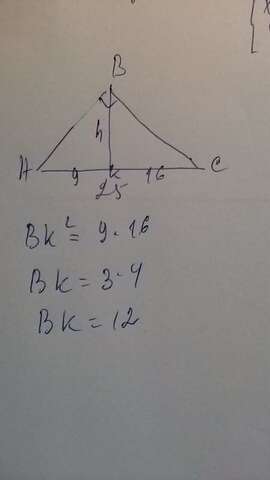 B
h
A 9 K 16 C
25
BK² = 9·16
BK = 3·4
BK = 12